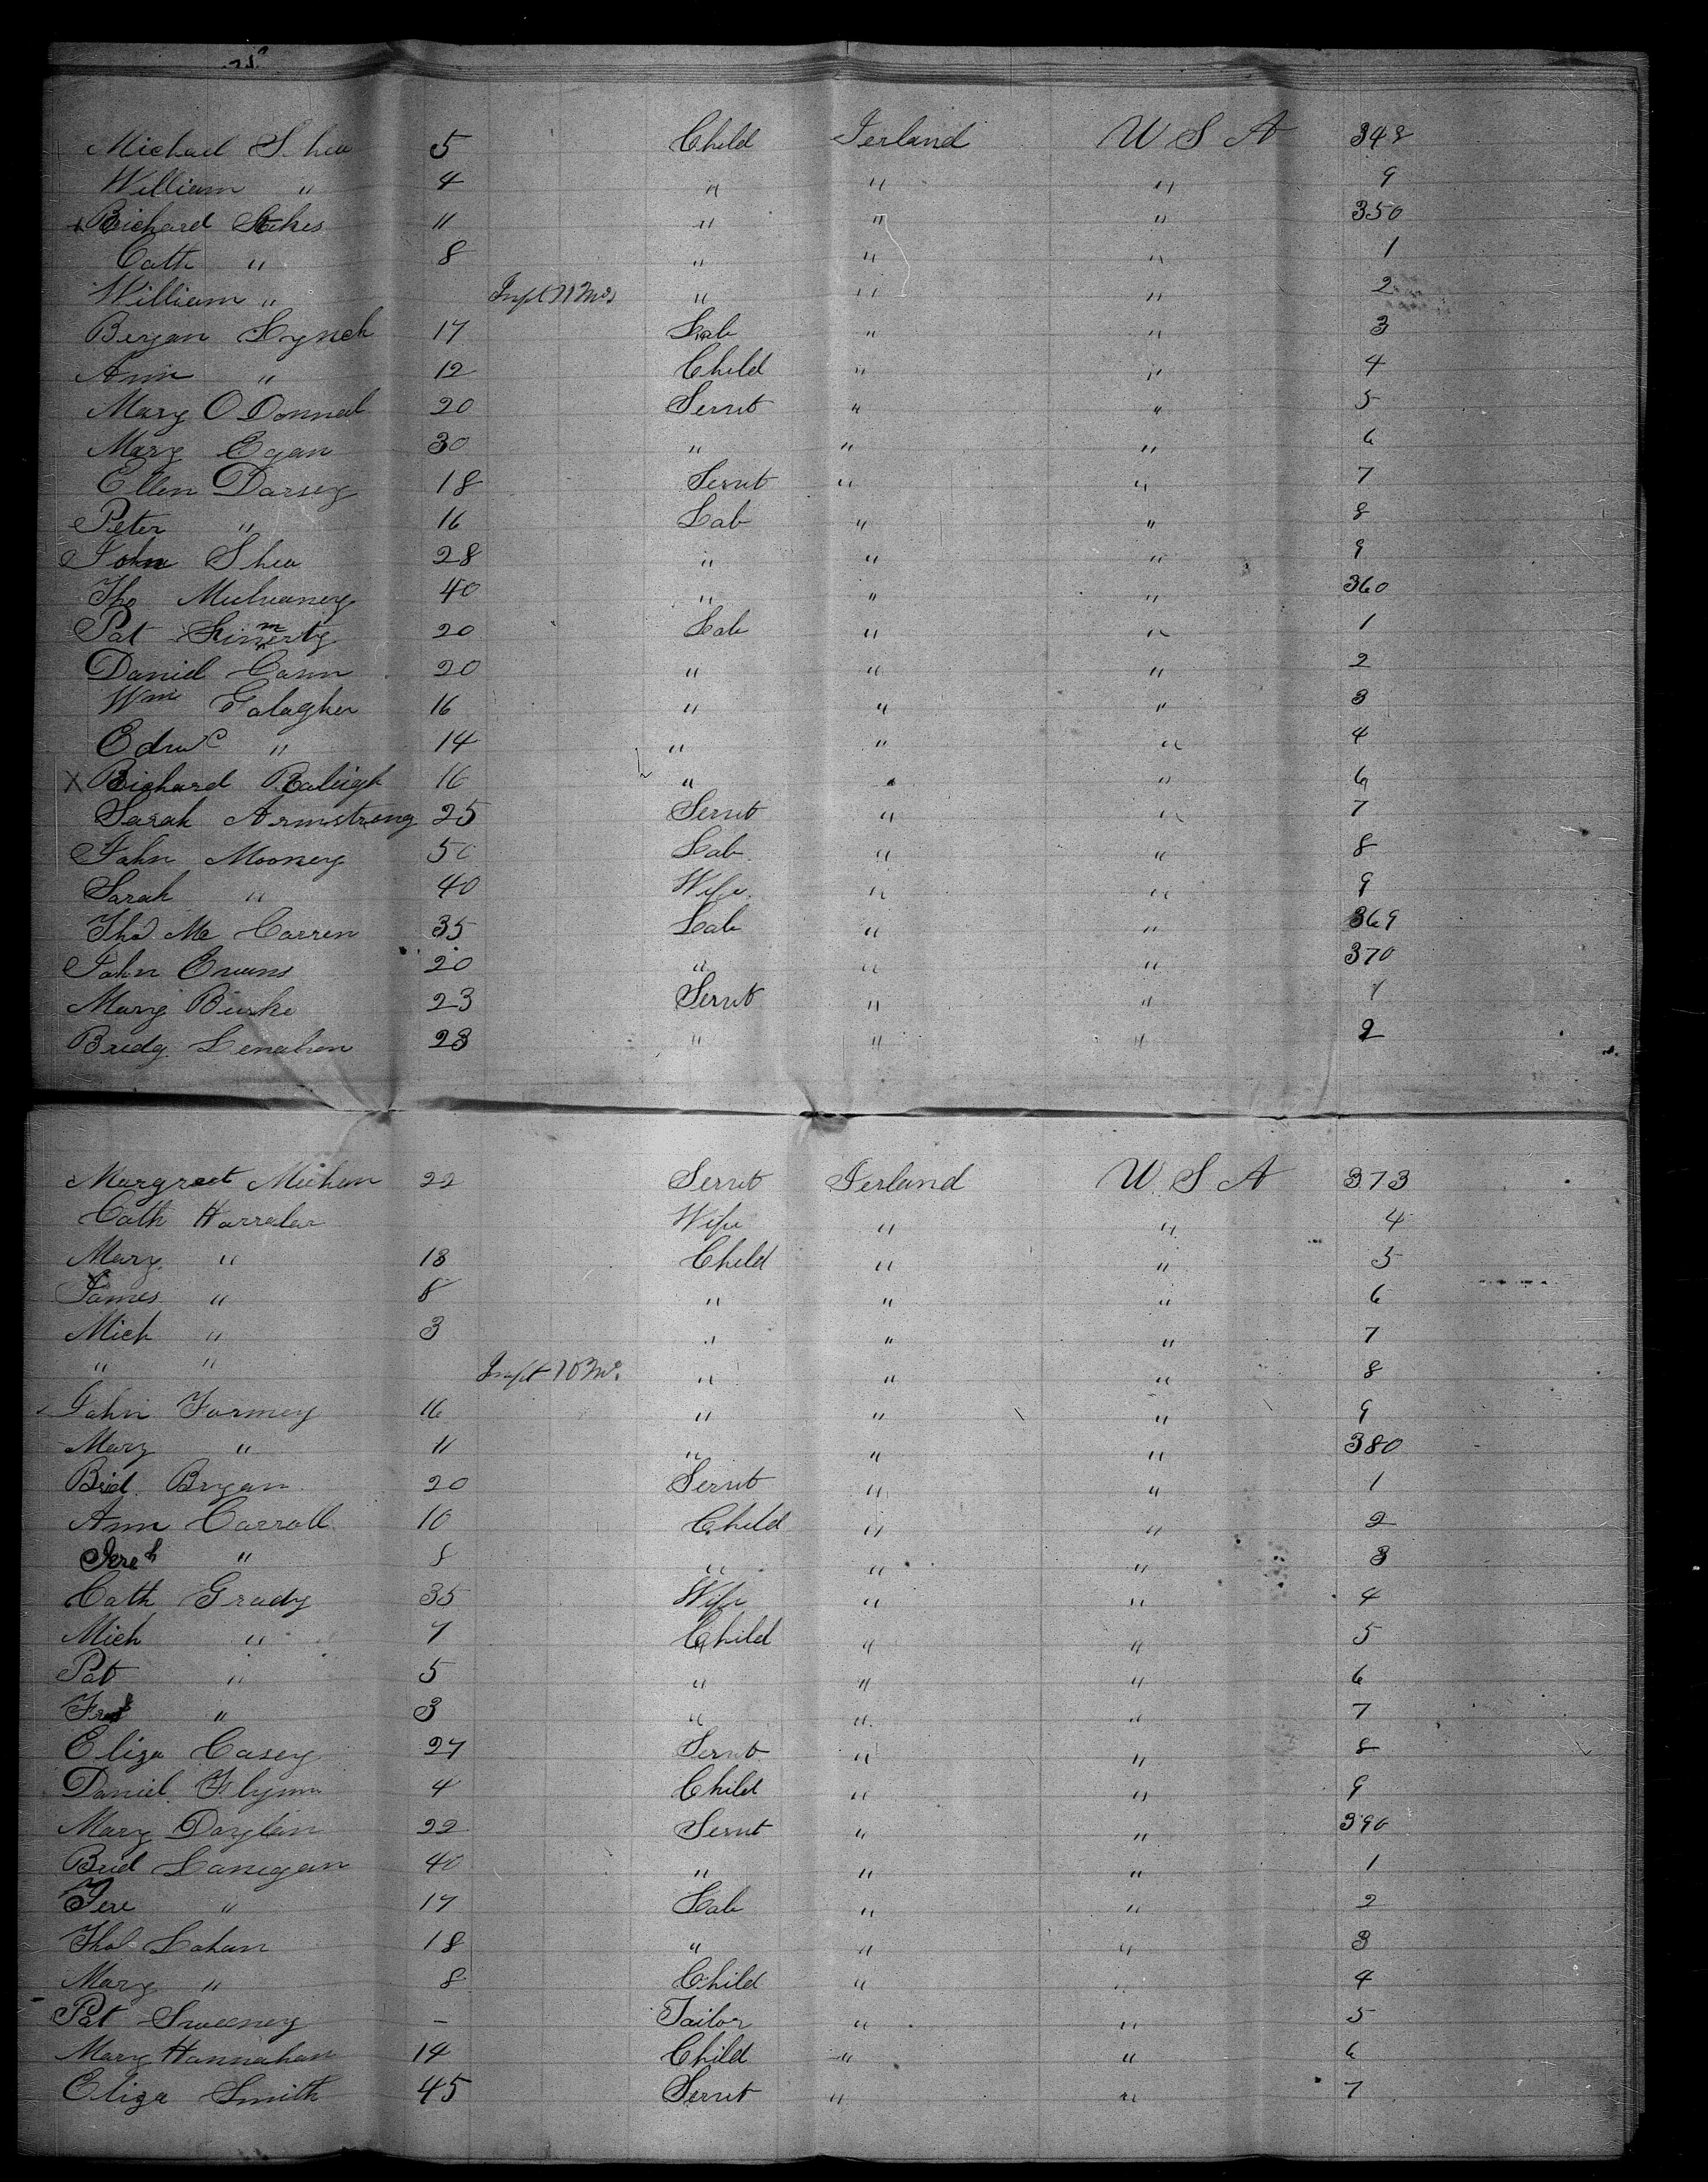 Michael Shea 5 Child Ierland U S A 348
William " 4 " " " 9
Richard Stokes 11 " " " 350
Cath " 8 " " " 1
William " Inft 11 Mos " " " 2
Bryan Lynch 17 Lab " " 3
Ann " 12 Child " " 4
Mary O Donnal 20 Servt " " 5
Mary Egan 30 " " " 6
Ellen Darsey 18 Servt " " 7
Peter " 16 Lab " " 8
John Shea 28 " " " 9
Tho Mulvaney 40 " " " 360
Pat 20 Lab " " 1
Daniel Cann 20 " " " 2
Wm Galagher 16 " " " 3
Edwd " 14 " " " 4
X Richard Raleigh 16 " " " 6
Sarah Armstrong 25 Servt " " 7
John Mooney 50 Lab " " 8
Sarah " 40 Wife " " 9
Thos Mc Carren 35 Lab " " 369
John Evans 20 " " " 370
Mary Burke 23 Servt " " 1
Bridg Lenahan 23 " " " 2
Margreet Mechan 22 Servt Ierland U S A 373
Cath Harralar Wife " " 4
Mary " 13 Child " " 5
James " 8 " " " 6
Mich " 3 " " " 7
" " Inft 10 Mos " " " 8
John Furmey 16 " " " 9
Mary " 11 " " " 380
Brid. Bryan 20 Servt " " 1
Ann Carroll 10 Child " " 2
Jereh " 8 " " " 3
Cath Grady 35 Wife " " 4
Mich " 7 Child " " 5
Pat " 5 " " " 6
" 3 " " " 7
Eliza Casey 27 Servt " " 8
Daniel Flynn 4 Child " " 9
Mary Darglan 22 Servt " " 390
Brid Lanegan 40 " " " 1
Jere " 17 Lab " " 2
Thos Lahan 18 " " " 3
Mary " 8 Child " " 4
Pat Sweeney - Tailor " " 5
Mary Hannahan 14 Child " " 6
Eliza Smith 45 Servt " " 7